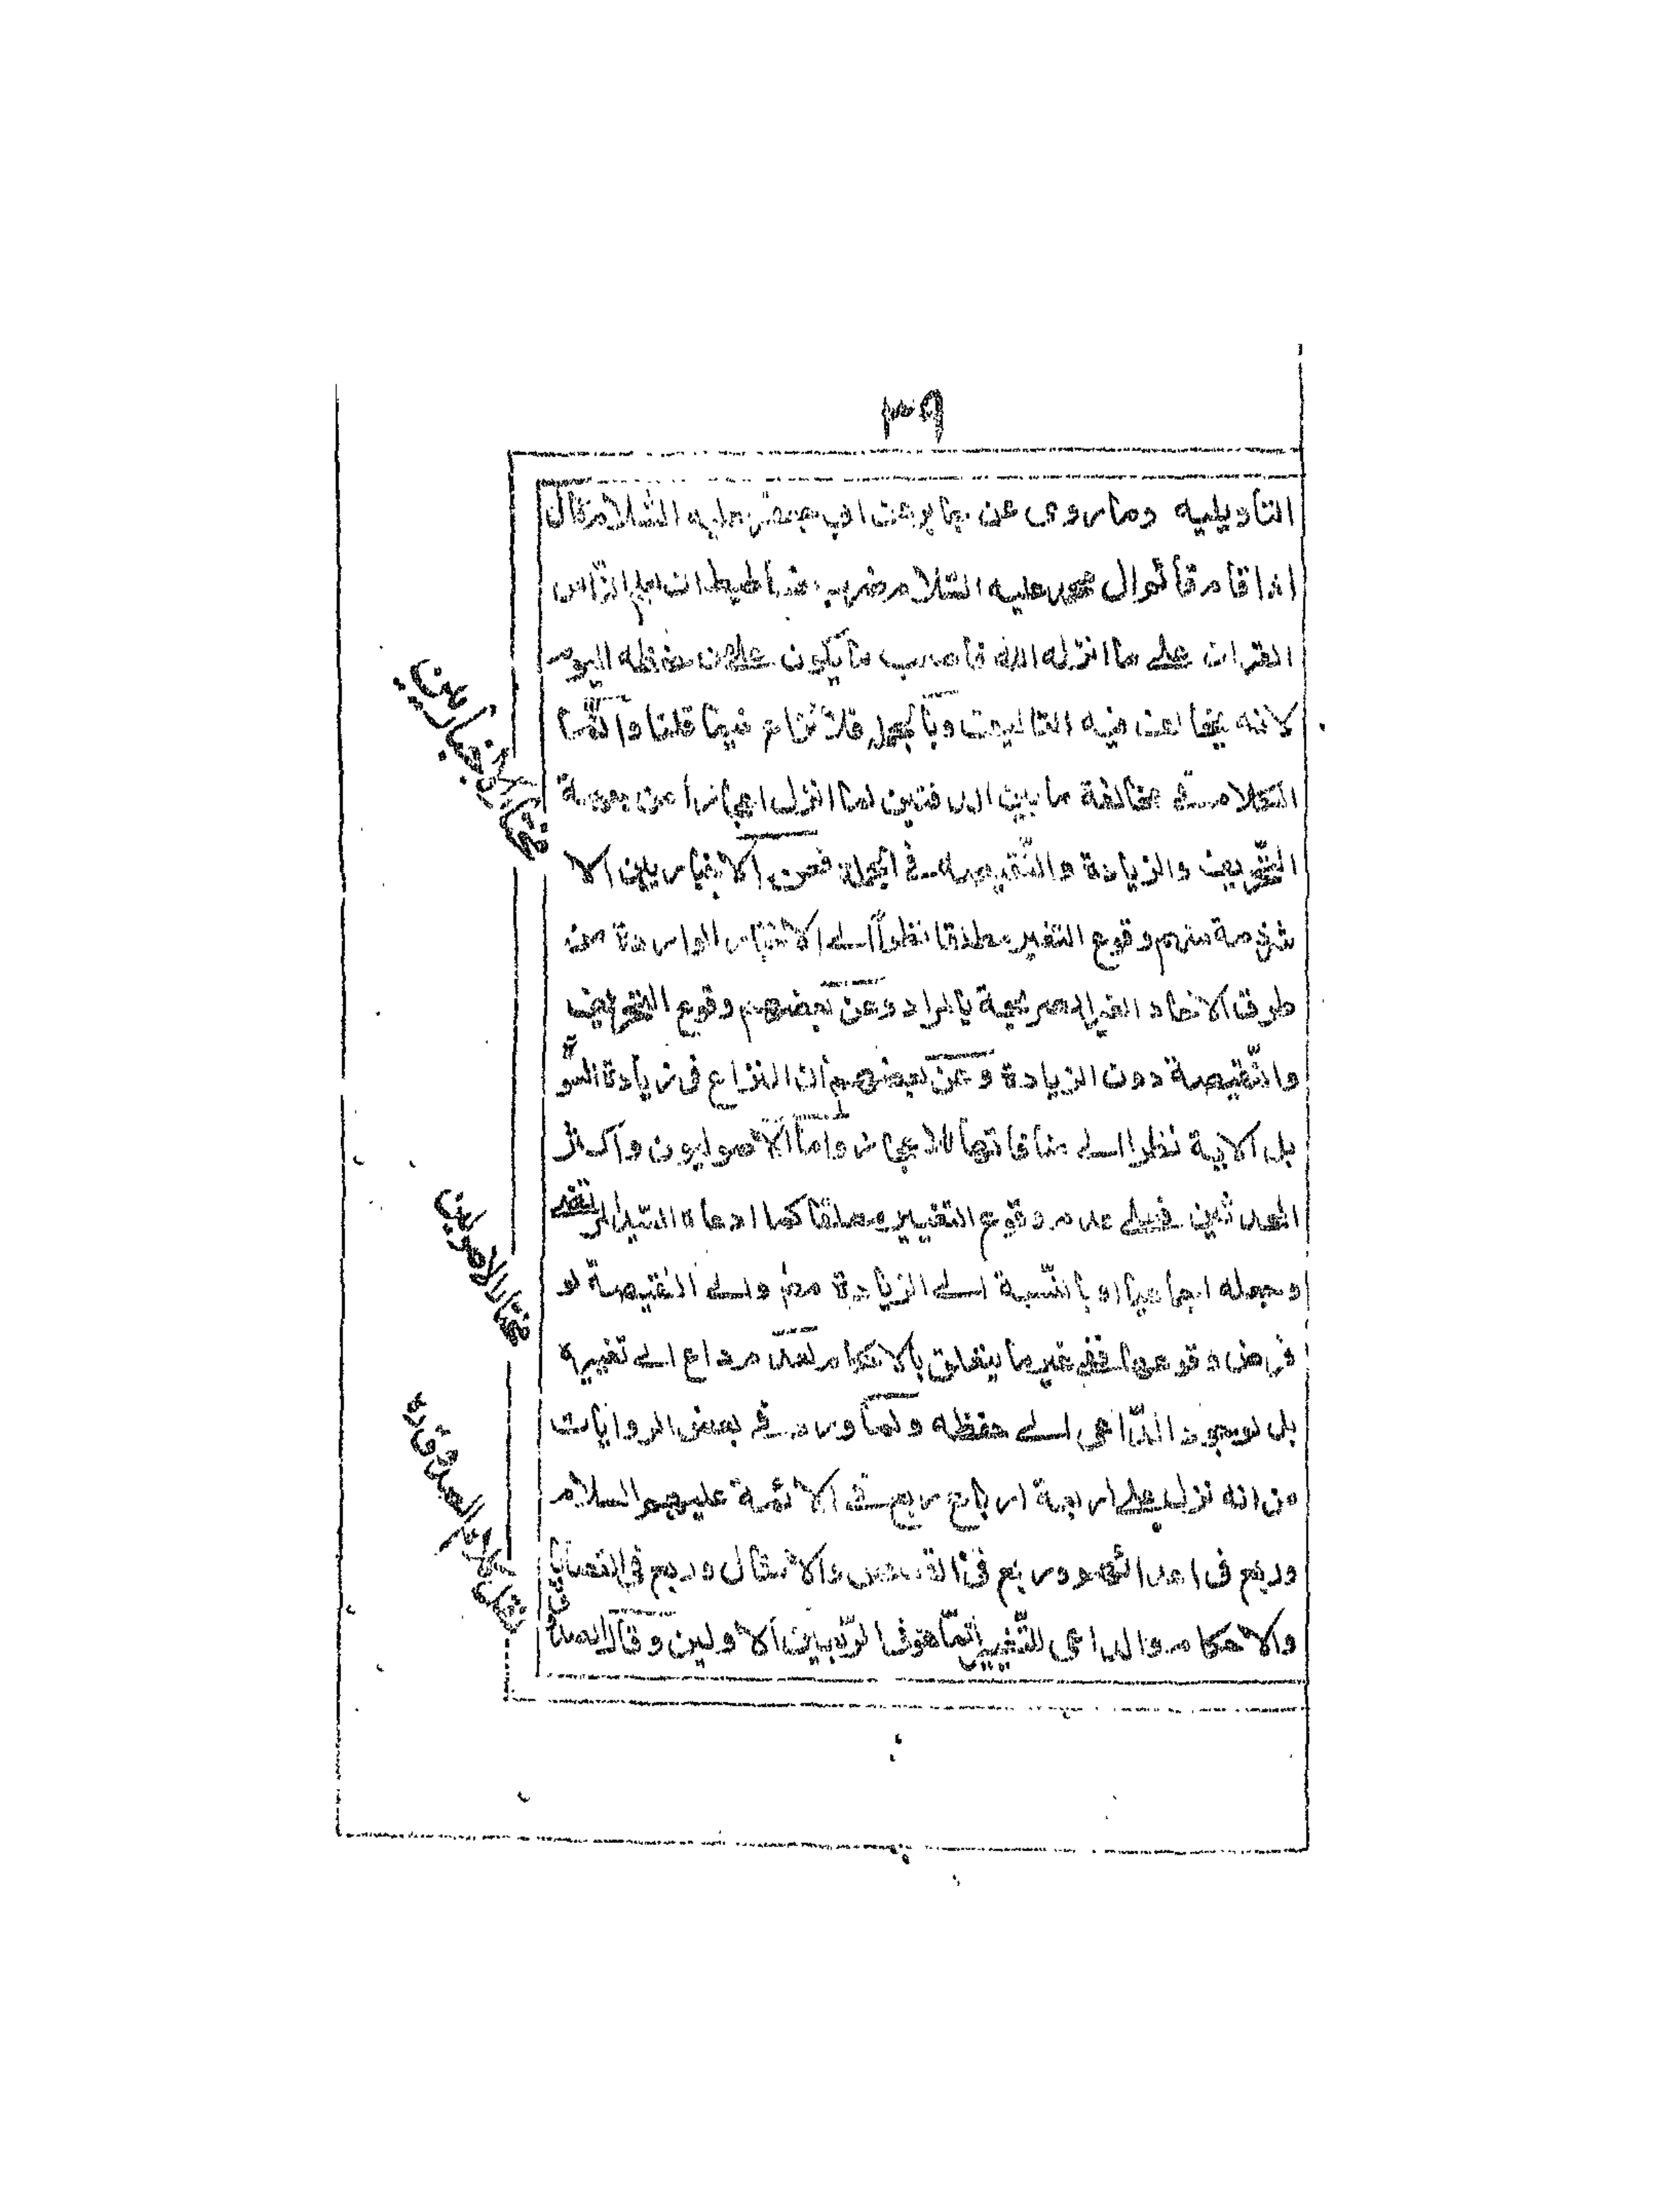 ٣٩
التاويليه وما روى عن جابر عن ابى جعفر عليه السّلام قال
اذا قام قائم ال محمد عليه السّلام ضرب فساطيط لمن يعلم النّاس
القران على ما انزله الله فاصعب ما يكون على من حفظه اليوم
لانه يخالف فيه التاليف وبالجملة فلا نزاع فيما قلنا وانّما
الكلام فى مخالفة ما بين الدفتين لما انزل اعجازا من جهة
التّحريف والزيادة والنّقيصه فى الجملة فعن الاخباريين الا
شرذمة منهم وقوع التغير مطلقا نظراً الى الاخبار الواردة من
طرق الاحاد الغير الصريحة بالمراد وعن بعضهم وقوع التحريف
والنّقيصة دون الزيادة وعن بعضهم ان النزاع فى زيادة السّورة
بل الاية نظرا الى منافاتها للاعجاز واما الاصوليون واكثر
المحدثين فعلى عدم وقوع التغيير مطلقا كما ادعاه السّيد المرتضى
وجعله اجماعيا او بالنّسبة الى الزيادة مط والى النقيصة لو
فرض وقوعها ففى غير ما يتعلق بالاحكام لعدم داع الى تغييره
بل لوجود الدّاعى الى حفظه ولما ورد فى بعض الروايات
من انه نزل على اربعة ارباع ربع فى الائمة عليهم السلام
وربع فى اعدائهم وربع فى القصص والامثال وربع فى القضايا
والاحكام والداعى للتّغيير انّما هو فى الرّبعين الاولين وقال الصدوق
مختار الاخباريين
مختار الاصوليين
نقل كلام الصدوق ره